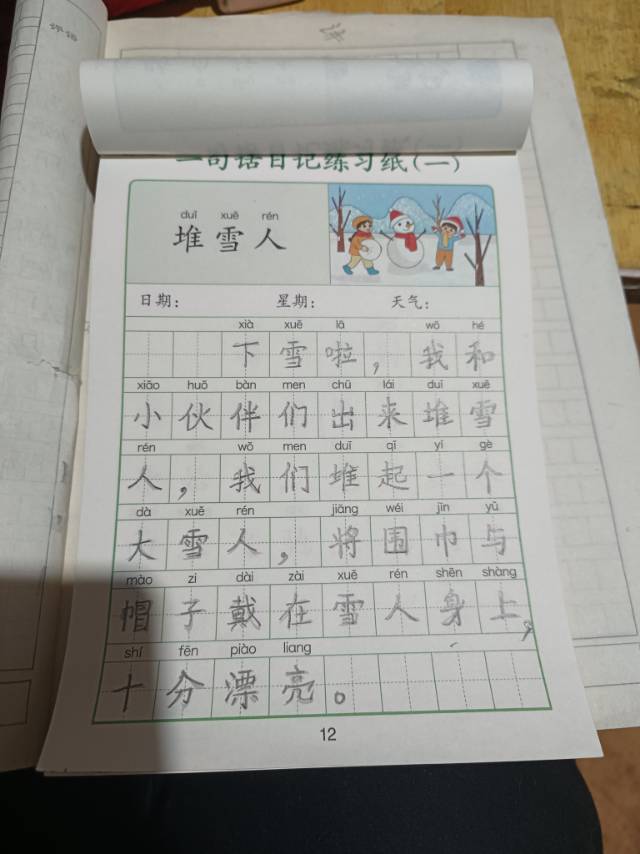 一句话日记练习纸(一)
duī xuě rén
堆雪人
日期： 星期： 天气：
xià xuě lā wǒ hé
下雪啦，我和
xiāo huǒ bàn men chū lái duī xuě
小伙伴们出来堆雪
rén wǒ men duī qǐ yí gè
人，我们堆起一个
dà xuě rén jiāng wéi jīn yǔ
大雪人，将围巾与
mào zi dài zài xuě rén shēn shàng
帽子戴在雪人身上，
shí fēn piào liang
十分漂亮。
12